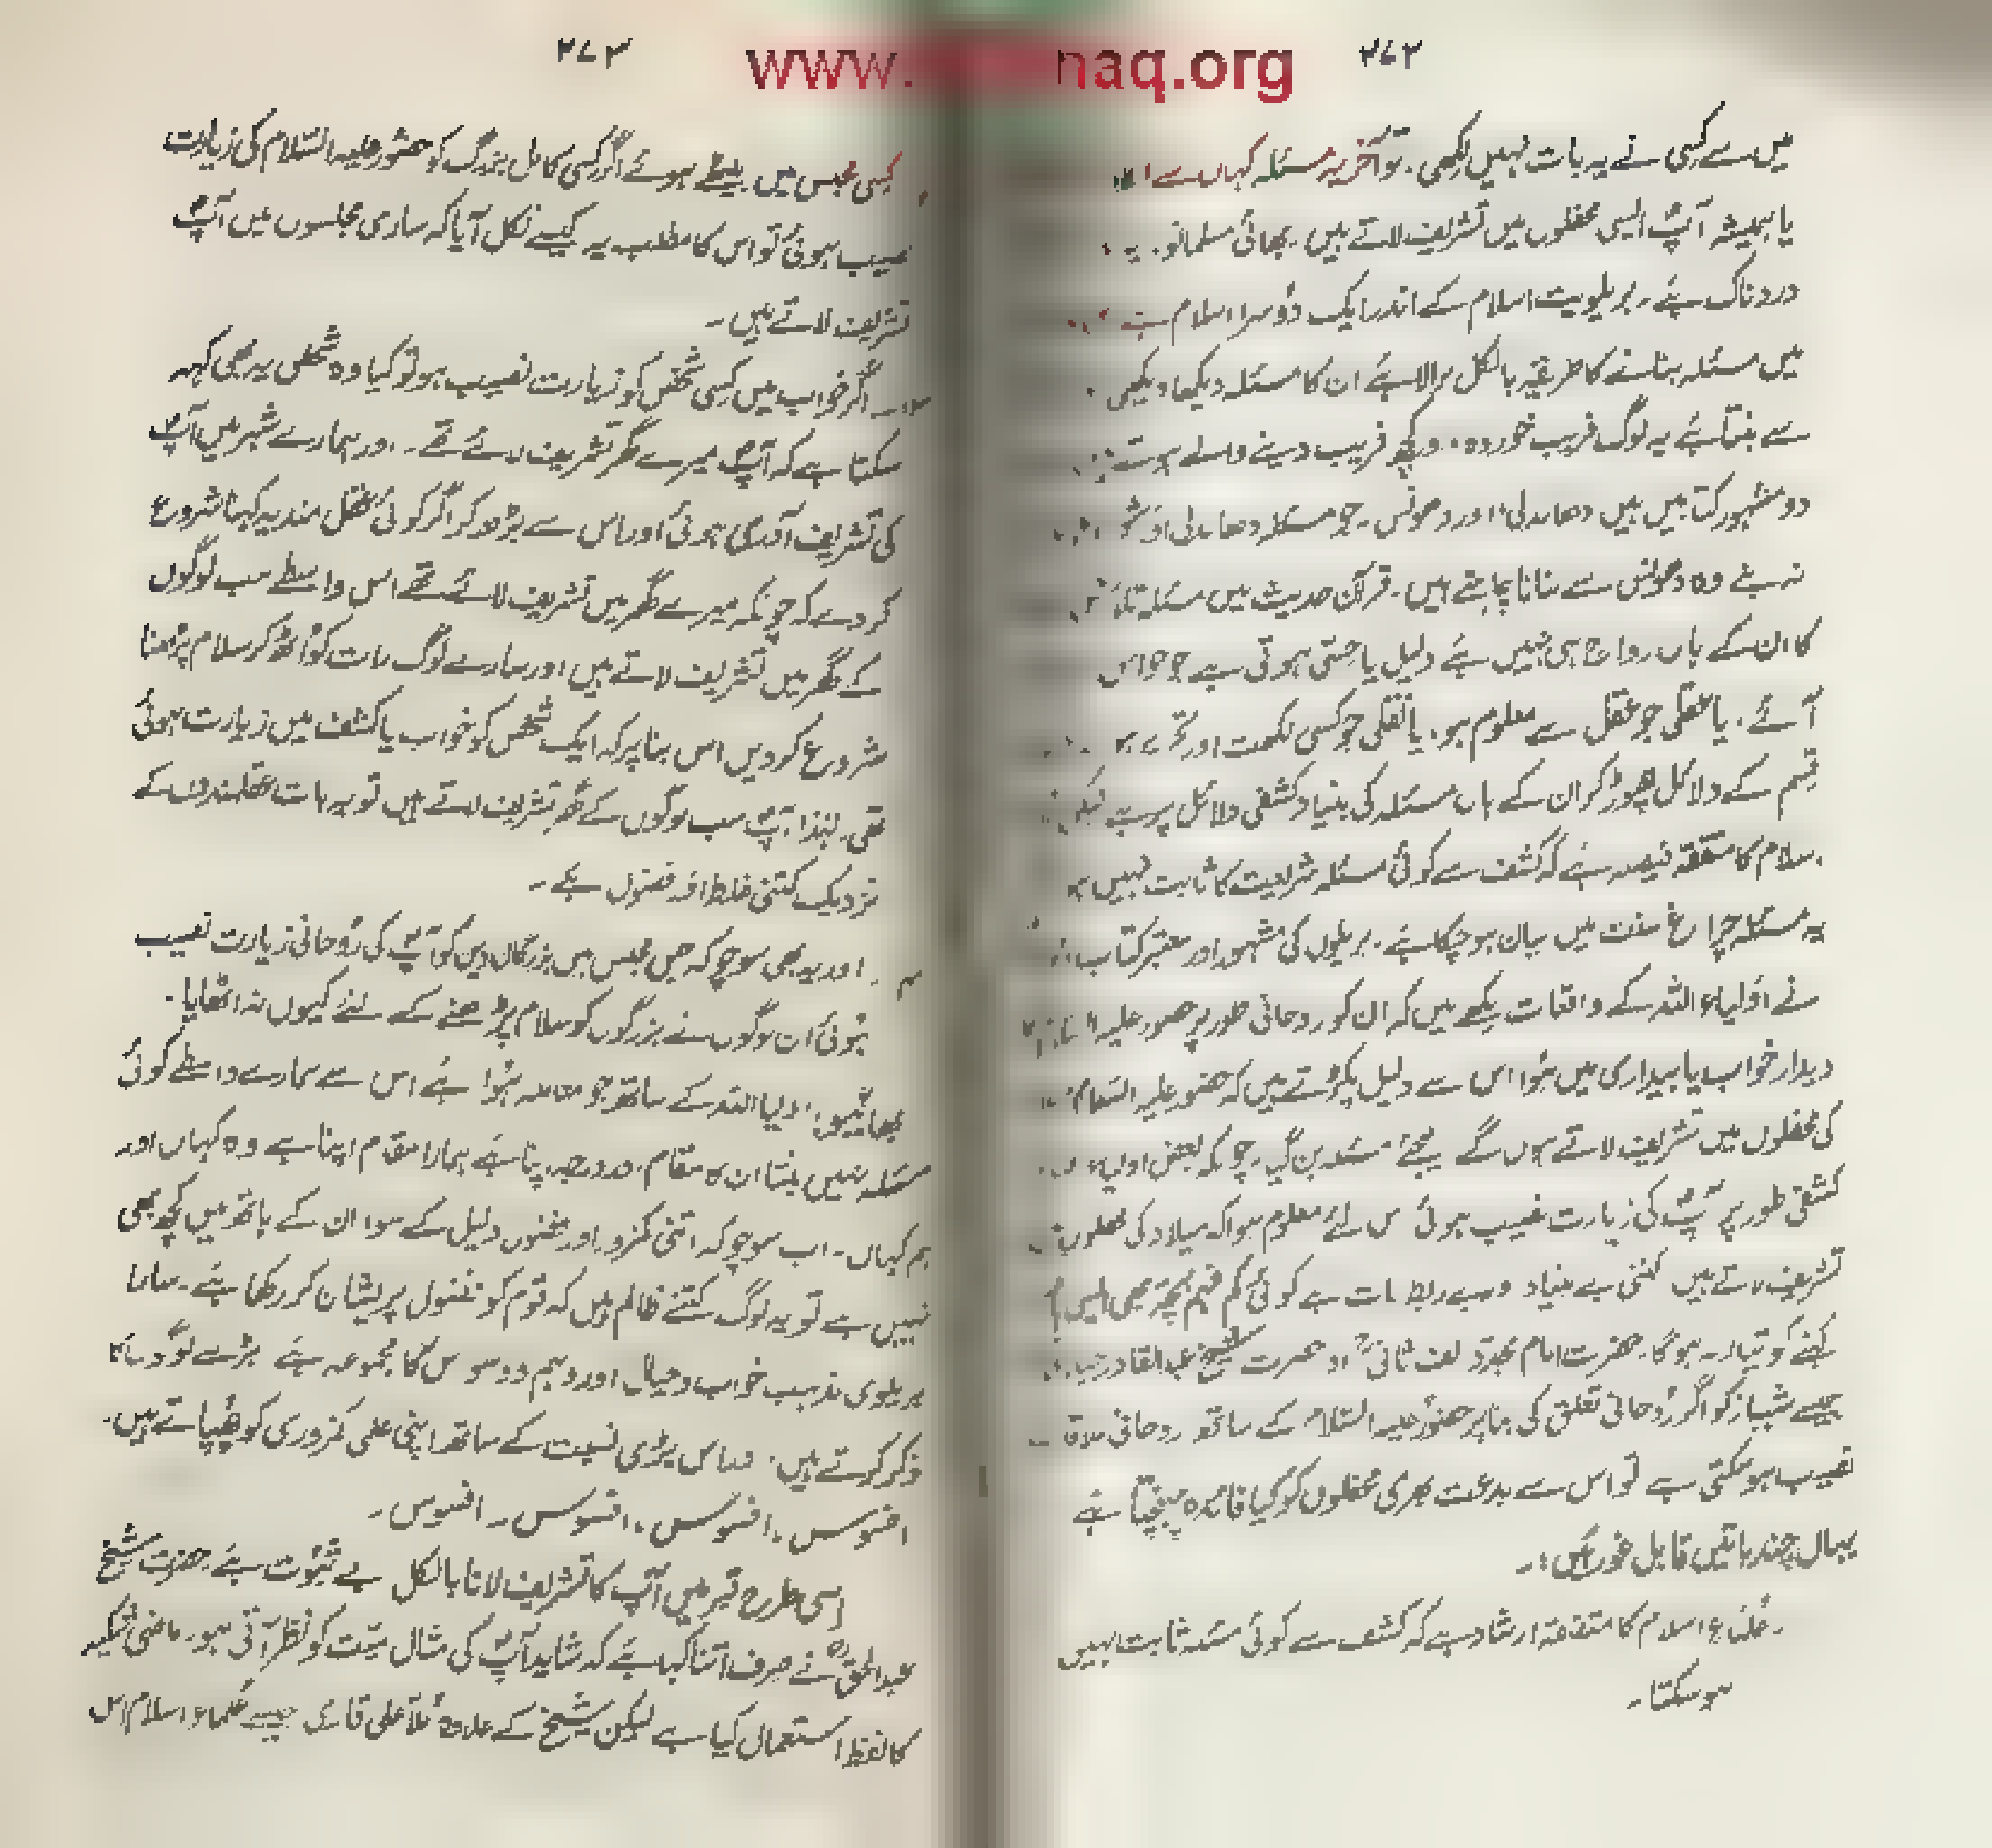 ۲۷۲
www. naq.org
میں سے کسی نے یہ بات نہیں لکھی. تو آخر یہ مسئلہ کہاں سے
یا ہمیشہ آپؐ ایسی محفلوں میں تشریف لاتے ہیں. بھائی مسلمانو.
دردناک ہے. بریلویت اسلام کے اندر ایک دوسرا اسلام ہے
میں مسئلہ بنانے کا طریقہ بالکل نرالا ہے ان کا مسئلہ دیکھا دیکھی
سے بنتا ہے یہ لوگ فریب خوردہ. فریب دینے والے
دو مشہور کتابیں ہیں دھاندلی اور دھونس. جو مسئلہ دھاندلی اور
نہ بنے وہ دھونس سے بنانا چاہتے ہیں. قرآن حدیث میں مسئلہ
کا ان کے ہاں رواج ہی نہیں ہے دلیل یا حسّی ہوتی ہے جو حواس
آئے. یا عقلی جو عقل سے معلوم ہو. یا نقلی جو کسی لکھت اور
قسم کے دلائل چھوڑ کر ان کے ہاں مسئلہ کی بنیاد کشفی دلائل پر ہے لیکن
اسلام کا متفقہ فیصلہ ہے کہ کشف سے کوئی مسئلہ شریعت کا ثابت نہیں
یہ مسئلہ چراغ سنت میں بیان ہو چکا ہے. بریلوں کی مشہور اور معتبر کتاب
نے اولیاء اللہ کے واقعات لکھے ہیں کہ ان کو روحانی طور پر حضور علیہ
دیدار خواب یا بیداری میں ہوا اس سے دلیل پکڑتے ہیں کہ حضور علیہ السّلام
کی محفلوں میں تشریف لاتے ہوں گے لیجئے مسئلہ بن گیا. چونکہ بعض اولیاء
کشفی طور پر آپؐ کی زیارت نصیب ہوئی اس لئے معلوم ہوا کہ میلاد کی محفلوں
تشریف لاتے ہیں کتنی بے بنیاد و بے ربط بات ہے کوئی کم فہم بچہ بھی ایسی
کہنے کو تیار نہ ہوگا. حضرت امام مجدّد الف ثانیؒ اور حضرت شیخ عبدالقادر
جیسے شہباز کو اگر روحانی تعلق کی بنا پر حضور علیہ السّلام کے ساتھ روحانی ملاقات
نصیب ہو سکتی ہے تو اس سے بدعت بھری محفلوں کو کیا فائدہ پہنچتا ہے
یہاں چند باتیں قابل غور ہیں:-
علماء اسلام کا متفقہ ارشاد ہے کہ کشف سے کوئی مسئلہ ثابت نہیں
ہو سکتا.
۲۷۳
کسی مجلس میں بیٹھے ہوئے اگر کسی کامل بزرگ کو حضور علیہ السّلام کی زیارت
نصیب ہوئی تو اس کا مطلب یہ کیسے نکل آیا کہ ساری مجلسوں میں آپؐ
تشریف لاتے ہیں.
۳- اگر خواب میں کسی شخص کو زیارت نصیب ہو تو کیا وہ شخص یہ بھی کہہ
سکتا ہے کہ آپؐ میرے گھر تشریف لائے تھے. اور ہمارے شہر میں آپؐ
کی تشریف آوری ہوئی اور اس سے بڑھ کر اگر کوئی عقل مند یہ کہنا شروع
کر دے کہ چونکہ میرے گھر میں تشریف لائے تھے اس واسطے سب لوگوں
کے گھر میں تشریف لاتے ہیں اور سارے لوگ رات کو اٹھ کر سلام پڑھنا
شروع کر دیں اس بنا پر کہ ایک شخص کو خواب یا کشف میں زیارت ہوئی
تھی. لہٰذا آپؐ سب لوگوں کے گھر تشریف لاتے ہیں تو یہ بات عقلمندوں کے
نزدیک کتنی غلط اور فضول ہے.
۴. اور یہ بھی سوچو کہ جس مجلس میں بزرگان دین کو آپؐ کی روحانی زیارت نصیب
ہوئی ان لوگوں نے بزرگوں کو سلام پڑھنے کے لئے کیوں نہ اٹھایا.
بھائیو! اولیا اللہ کے ساتھ جو معاملہ ہوا ہے اس سے ہمارے واسطے کوئی
مسئلہ نہیں بنتا ان کا مقام و درجہ اپنا ہے ہمارا مقام اپنا ہے وہ کہاں اور
ہم کہاں. اب سوچو کہ اتنی کمزور اور فضول دلیل کے سوا ان کے ہاتھ میں کچھ بھی
نہیں ہے تو یہ لوگ کتنے ظالم ہیں کہ قوم کو فضول پریشان کر رکھا ہے. سارا
بریلوی مذہب خواب و خیال اور وہم و وسوس کا مجموعہ ہے بڑے لوگوں کا
ذکر کرتے ہیں. اور اس بڑی نسبت کے ساتھ اپنی علمی کمزوری کو چھپاتے ہیں.
افسوس. افسوس. افسوس. افسوس.
اسی طرح قبر میں آپؐ کا تشریف لانا بالکل بے ثبوت ہے. حضرت شیخ
عبدالحقؒ نے صرف اتنا کہا ہے کہ شاید آپؐ کی مثال میّت کو نظر آتی ہو. ماضی شکیہ
کا لفظ استعمال کیا ہے لیکن شیخ کے علاوہ مُلّا علی قاری جیسے علماء اسلام اس